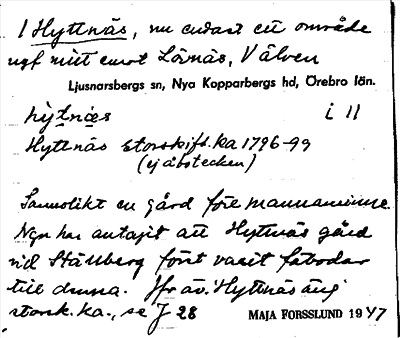 1 Hyttnäs, nu endast ett område
ugf mitt emot Lövnäs, V älven
Ljusnarsbergs sn, Nya Kopparbergs hd, Örebro län.
hy̜tnæs i 11
Hyttnäs storskift.ka 1796-99
(ej åbotecken)
Sannolikt en gård före mannaminne.
Ngn har antagit att Hyttnäs gård
vid Ställberg först varit fäbodar
till denna. Jfr äv. Hyttnäs äng
storsk. ka., se J 28
MAJA FORSSLUND 1947